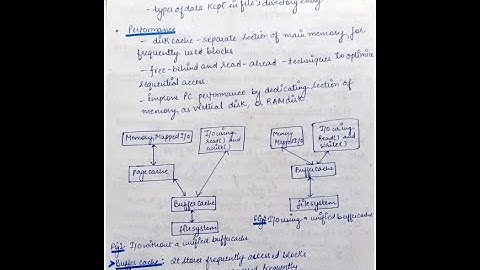 - types of data kept in file's directory entry
• Performance
- disk cache - separate section of main memory for
frequently used blocks
- free-behind and read-ahead - techniques to optimize
sequential access
- improve PC performance by dedicating section of
memory as virtual disk, or RAM disk
Memory Mapped I/O
I/O using
Read() and
Write()
Page cache
Buffer cache
file system
Memory
Mapped I/O
I/O using
Read() and
Write()
Buffer cache
file system
Fig 2: I/O using a unified buffer cache
Fig 1: I/O without a unified buffer cache
Buffer cache: It stores frequently accessed blocks
frequently